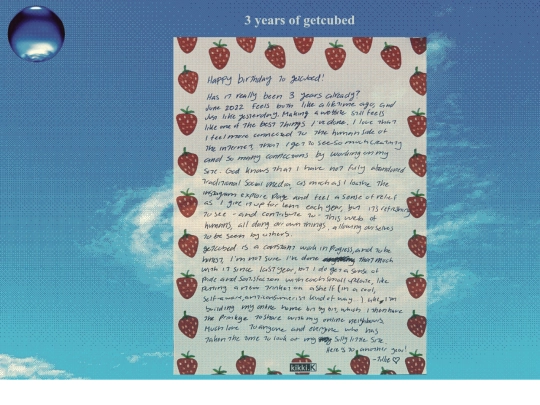 3 years of getcubed
Happy birthday to getcubed!
Has it really been 3 years already?
June 2022 feels both like a lifetime ago, and
just like yesterday. Making a website still feels
like one of the best things i've done. I love that
I feel more connected to the human side of
the internet, that I get to see so much creativity
and so many connections by working on my
site. God knows that I have not fully abandoned
traditional social media, as much as I loathe the
instagram explore page and feel a sense of relief
as I give it up for lent each year, but it's refreshing
to see - and contribute to - this web of
humanity, all doing our own things, allowing ourselves
to be seen by others.
getcubed is a constant work in progress, and to be
honest, I'm not sure i've done that much
with it since last year, but I do get a sense of
pride and satisfaction with each small update, like
putting a new trinket on a shelf (in a cool,
self-aware, anticonsumerist kind of way. I like, I'm
building my little home bit by bit, which I then have
the privilege to share with my online neighbours.
Much love to anyone and everyone who has
taken the time to look at my silly little site.
Here's to another year!
kikki.K